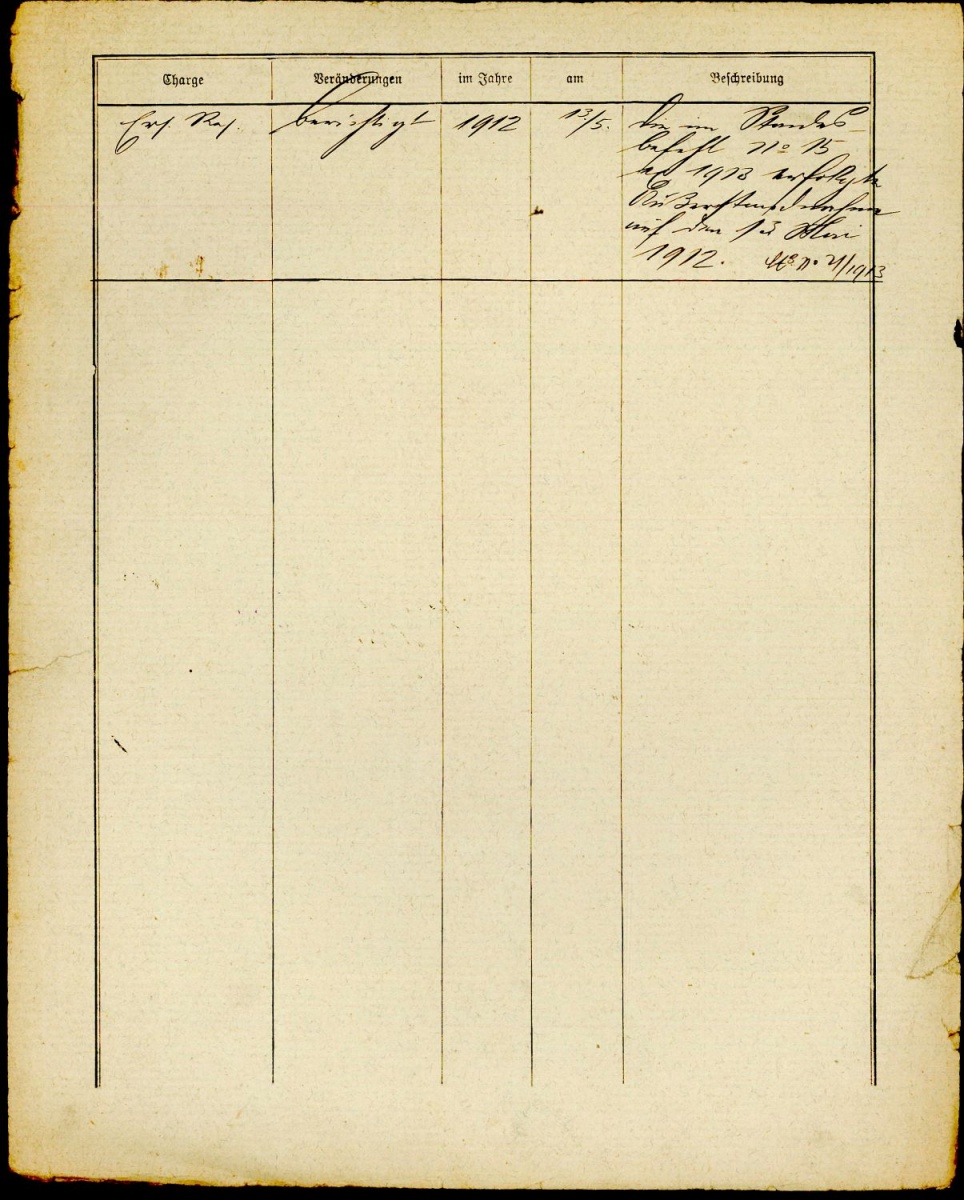 Charge Veränderungen im Jahre am Beschreibung
Ers. Res. berichtigt 1912 13/5. Die im Standes-
befehl No 15
ex 1913 erfolgte
Außerstandnahme
auf den 13 Mai
1912. No 21/1913